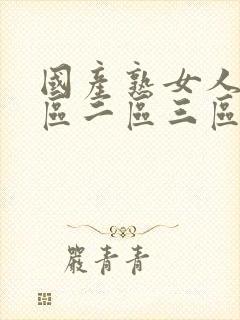 國產熟女人
區二區三區
嚴青青